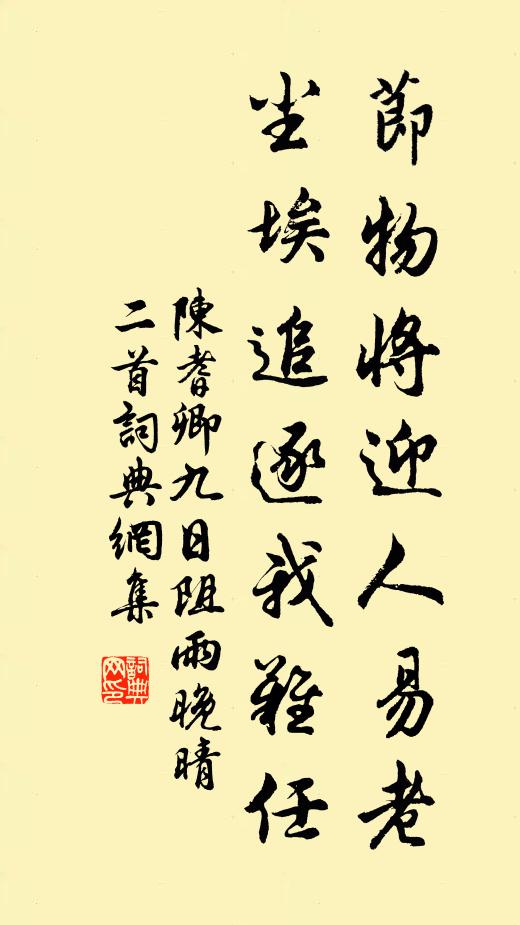 節物將迎人易老
尘埃追逐我難任
陳耆卿九日阻雨晚晴
二首詞典網集
詞典网印